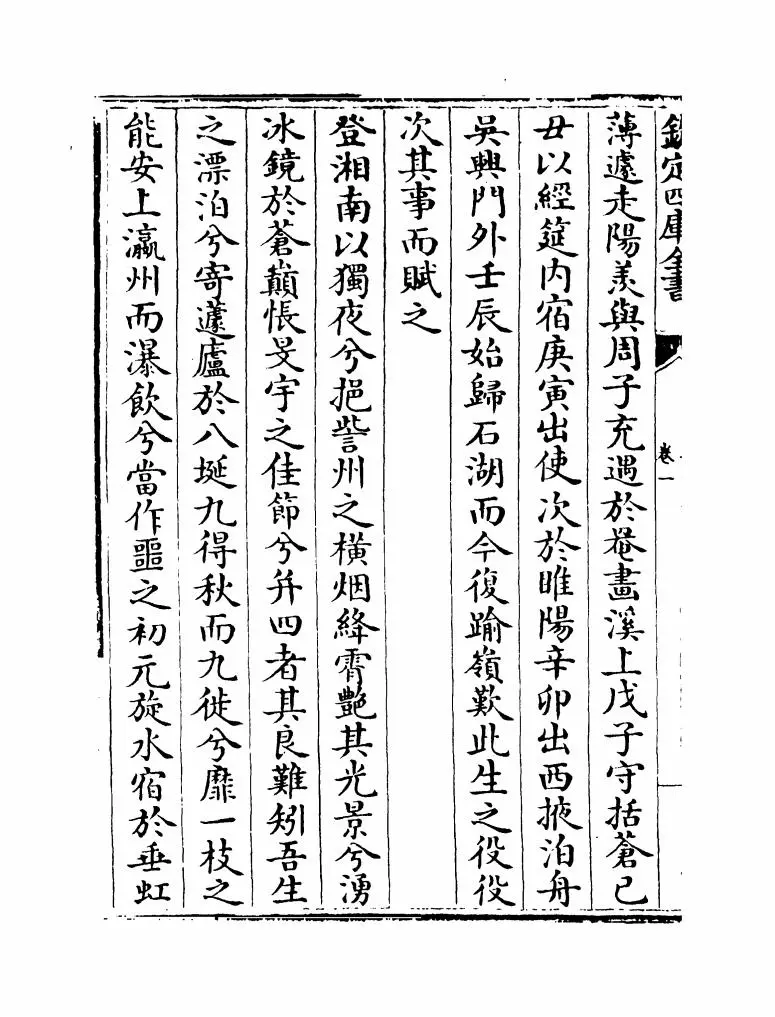 欽定四庫全書
卷一
薄遽走陽羨與周子充遇於罨畫溪上戊子守括蒼己
丑以經筵内宿庚寅出使次於睢陽辛卯出西掖泊舟
吳興門外壬辰始歸石湖而今復踰嶺歎此生之役役
次其事而賦之
登湘南以獨夜兮挹訾州之橫烟絳霄艶其光景兮湧
冰鏡於蒼巔悵旻宇之佳節兮并四者其良難矧吾生
之漂泊兮寄蘧廬於八埏九得秋而九徙兮靡一枝之
能安上瀛州而瀑飲兮當作噩之初元旋水宿於垂虹